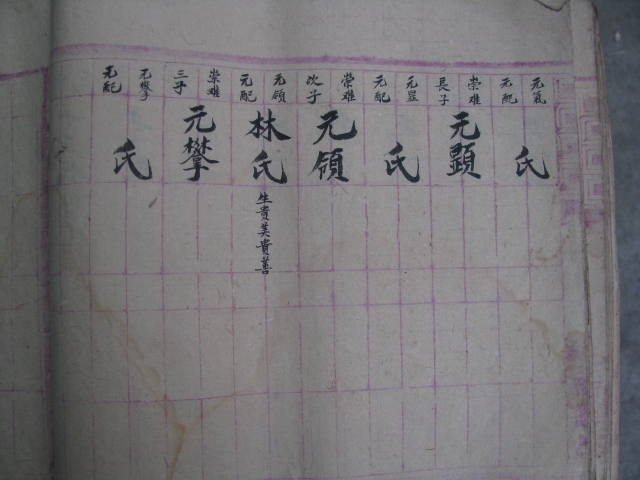 元氣
元配
氏
崇难
長子
元顕
元显
元配
氏
崇难
次子
元領
元领
元配
林氏
生貴美貴善
崇难
三子
元攀
元攀
元配
氏